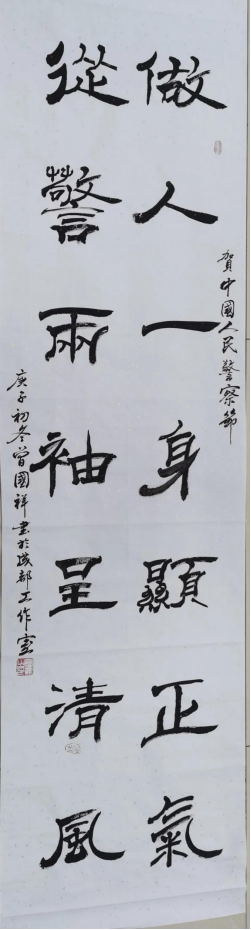 賀中國人民警察節
做人一身顯正氣
從警兩袖呈清風
庚子初冬曾國祥書於成都工作室